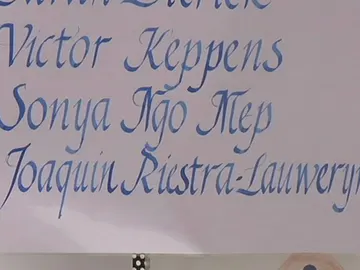 Victor Keppens
Sonya Ngo Mep
Joaquin Riestra-Lauweryn